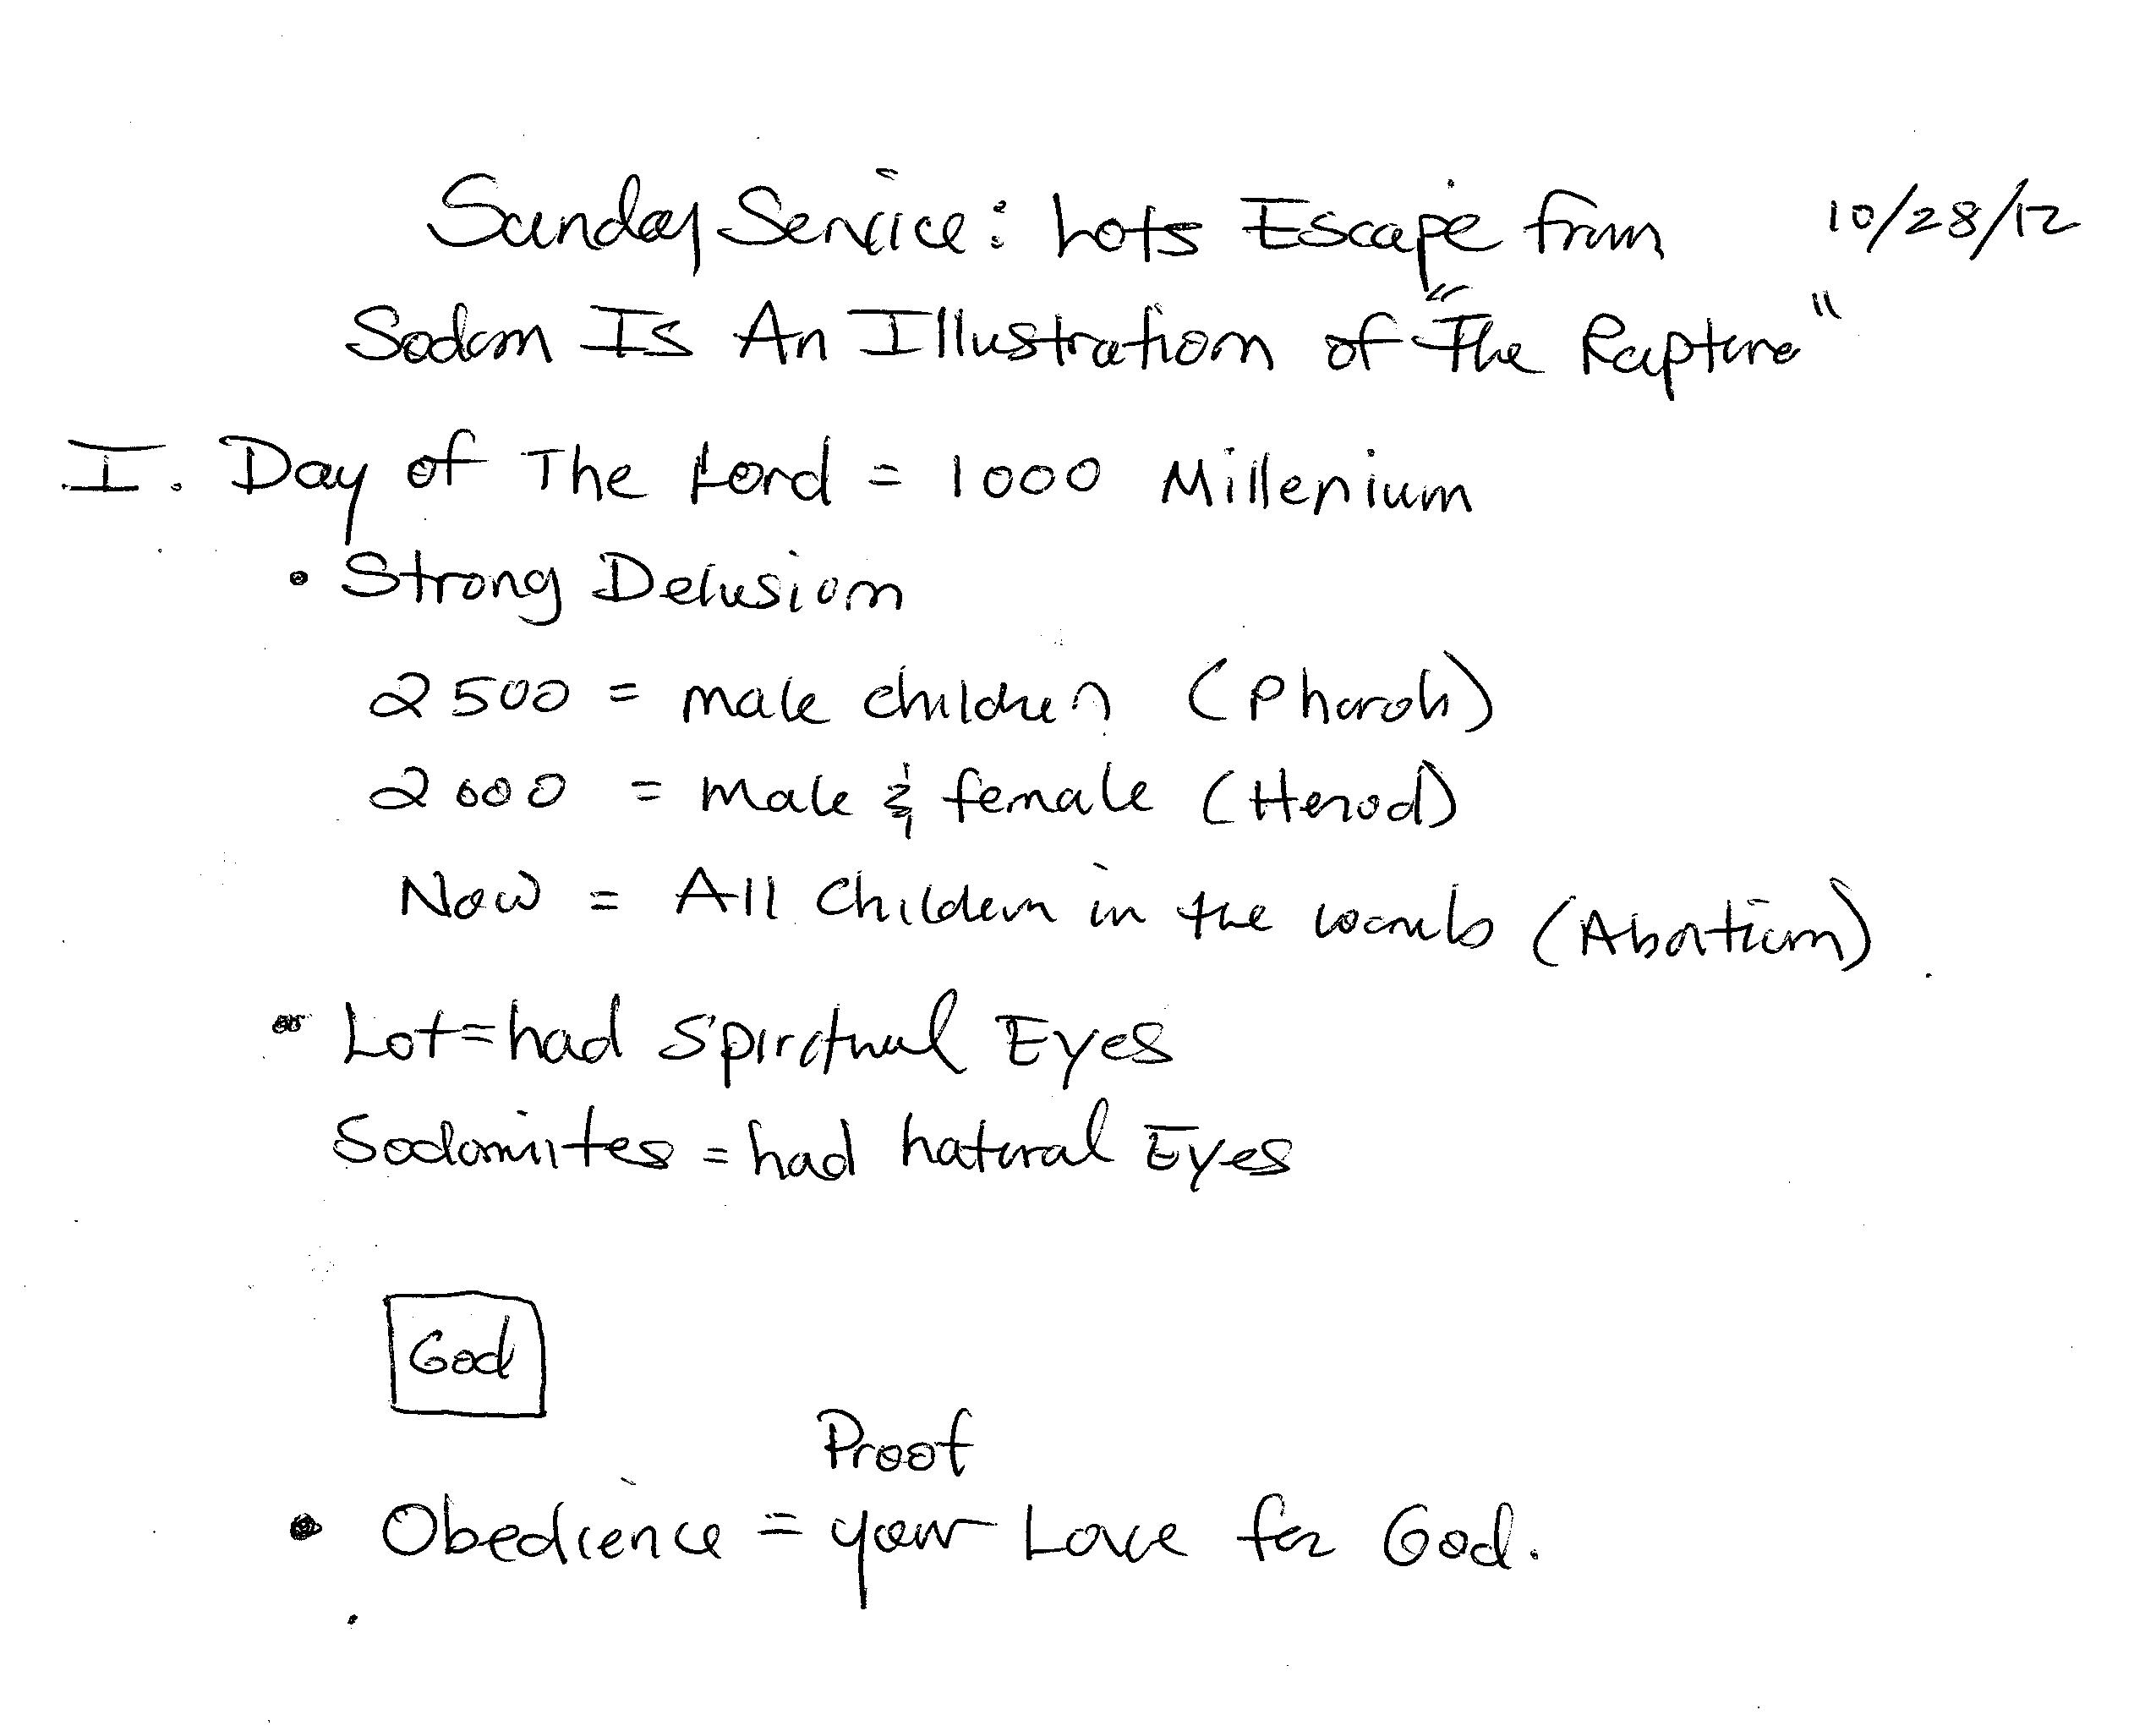 Sunday Service: Lots Escape from 10/28/12
Sodom Is An Illustration of "The Rapture"
I. Day of The Lord = 1000 Millenium
• Strong Delusion
2500 = male children (Pharoh)
2000 = male & female (Herod)
Now = All Childern in the womb (Abortion)
• Lot = had Spiritual Eyes
Sodomites = had natural Eyes
God
Proof
• Obedience = your Love for God.